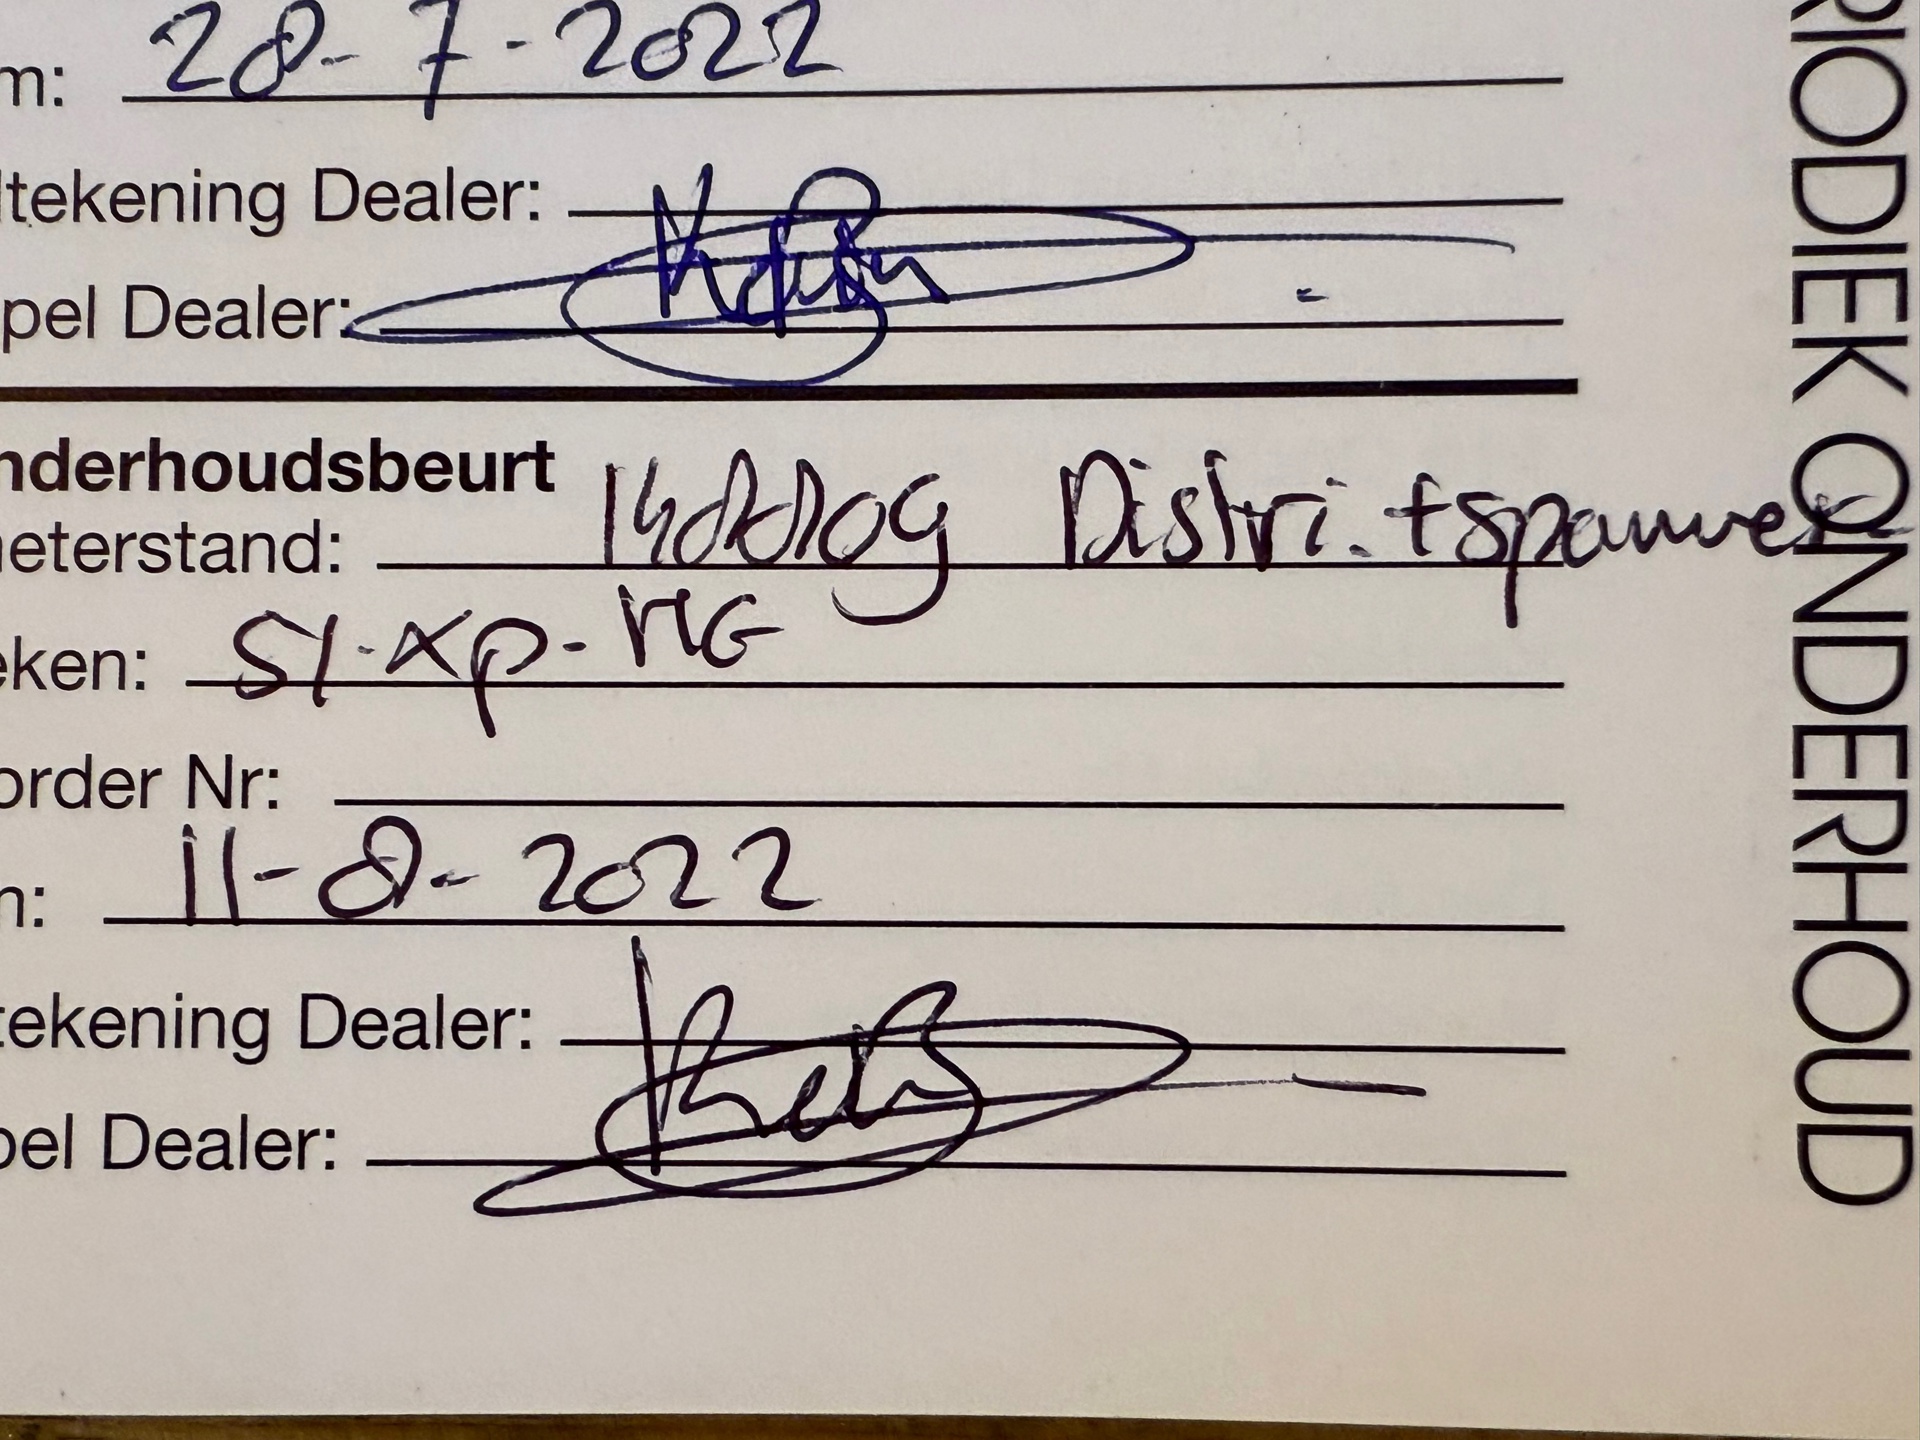 m: 28-7-2022
dtekening Dealer:
pel Dealer:
nderhoudsbeurt
neterstand: Distri. + spanner
eken: SI-XP-HG
order Nr:
n: 11-8-2022
tekening Dealer:
pel Dealer:
RIODIEK ONDERHOUD